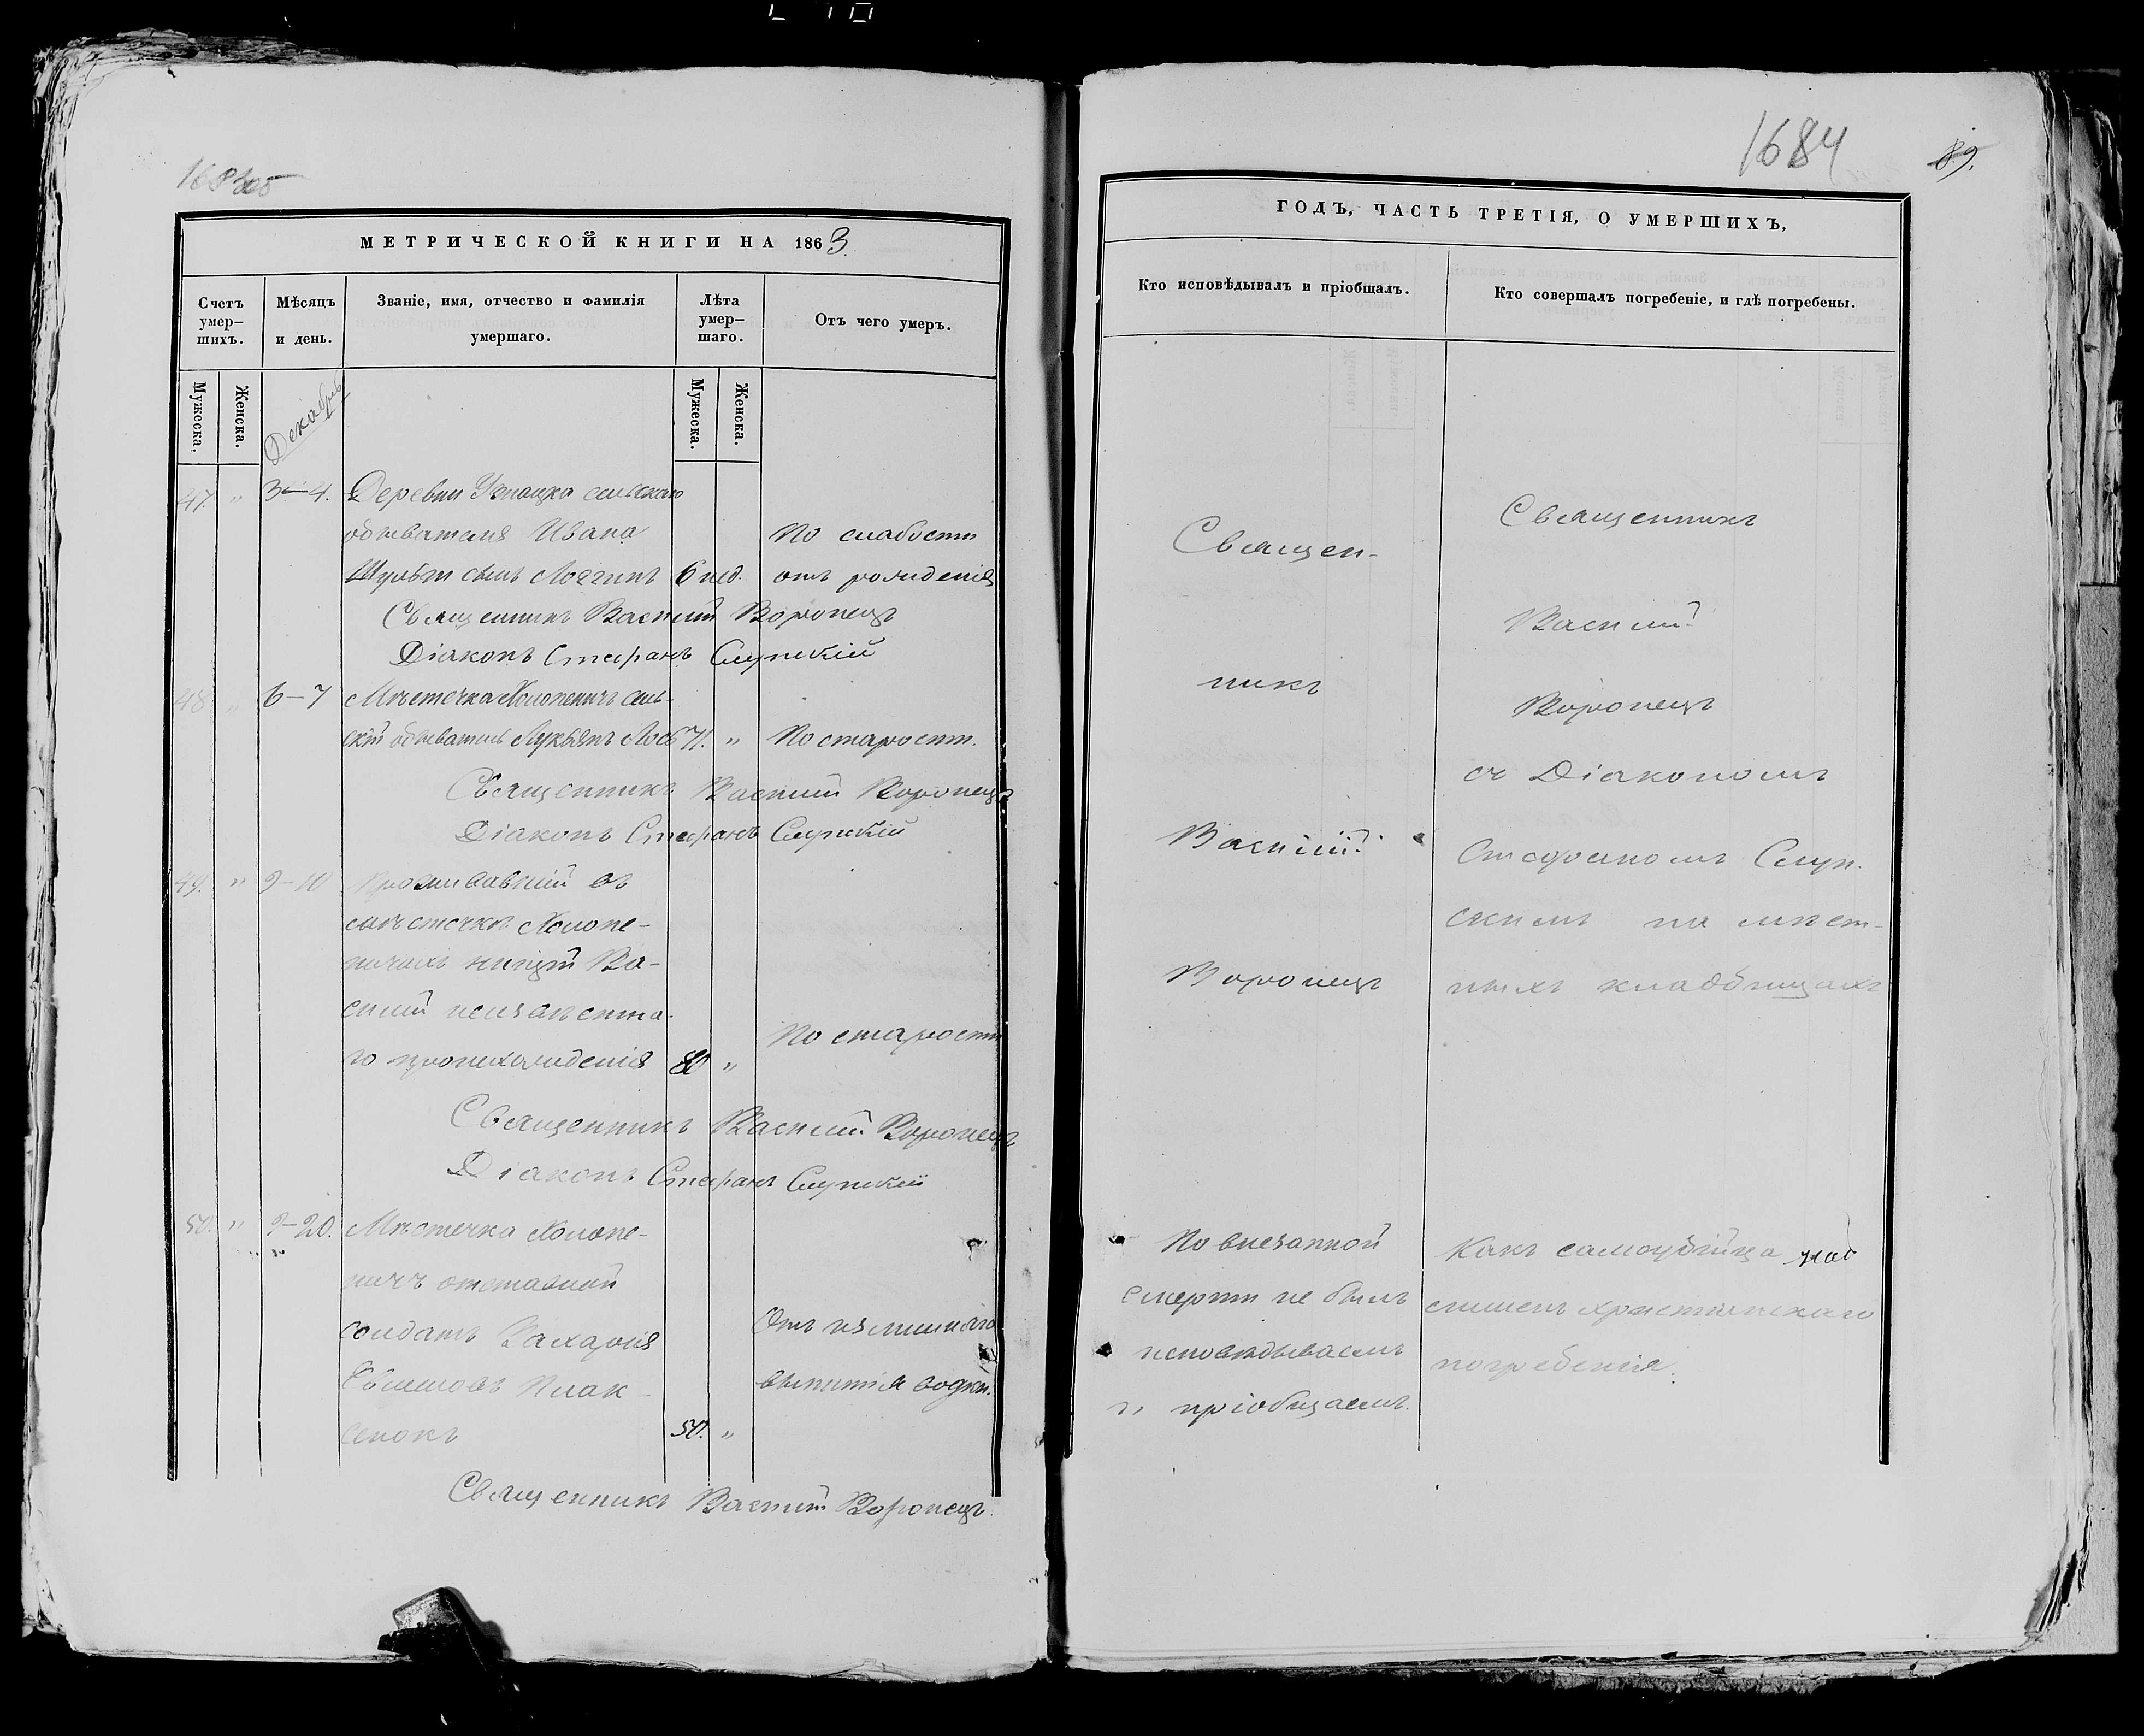 1684
89.
МЕТРИЧЕСКОЙ КНИГИ НА 1863.
Счетъ умер— шихъ.
Мѣсяцъ и день.
Званіе, имя, отчество и фамилія умершаго.
Лѣта умер— шаго.
Отъ чего умеръ.
Мужеска.
Женска.
Декабрь
Мужеска.
Женска.
47. " 3—4. Деревни сельскаго
обывателя Ивана
По слабости
Шульги сынъ Логгинъ 6 нед. отъ рожденія
Священникъ Василій Воронецъ
Діаконъ Стефанъ Слупскій
48 " 6—7 Мѣстечка Холопеничъ сель-
скій обыватель Лукьянъ 71. " По старости.
Священникъ Василій Воронецъ
Діаконъ Стефанъ Слупскій
49. " 9—10 Проживавшій въ
мѣстечкѣ Холопе-
ничахъ нищій Ва-
силій неизвѣстна-
го происхожденія 80 " По старости
Священникъ Василій Воронецъ
Діаконъ Стефанъ Слупскій
50. " 9—20. Мѣстечка Холопе-
ничъ отставной
солдатъ Захарія
Отъ излишняго
выпитія водки.
50. "
Священникъ Василій Воронецъ.
ГОДЪ, ЧАСТЬ ТРЕТІЯ, О УМЕРШИХЪ,
Кто исповѣдывалъ и пріобщалъ.
Кто совершалъ погребеніе, и гдѣ погребены.
Священ-
никъ
Василій
Воронецъ
Священникъ
Василій
Воронецъ
съ Діакономъ
Стефаномъ Слуп-
скимъ на мѣст-
ныхъ кладбищахъ
По внезапной
смерти не былъ
исповѣдываемъ
и пріобщаемъ.
Какъ самоубійца
лишенъ христіанскаго
погребенія.